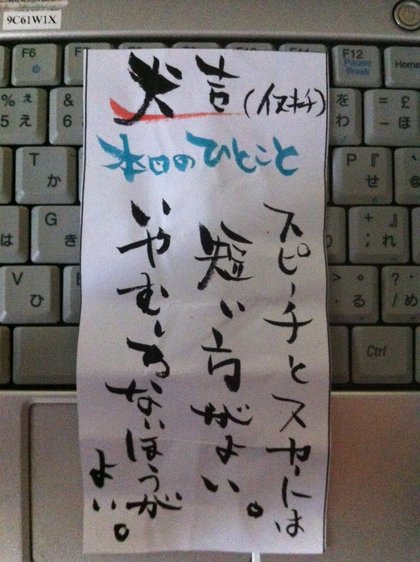 9C61W1X
犬吉(イヌキチ)
本日のひとこと
スピーチとスカートは
短い方がよい。
いやむしろないほうが
よい。
F6
F12
Pause
Break
Home
% え
5
&
6
を
わ
£
ほ
T
か
P 『
せ @
G
き
+ 』
; れ
V
ひ
Ctrl